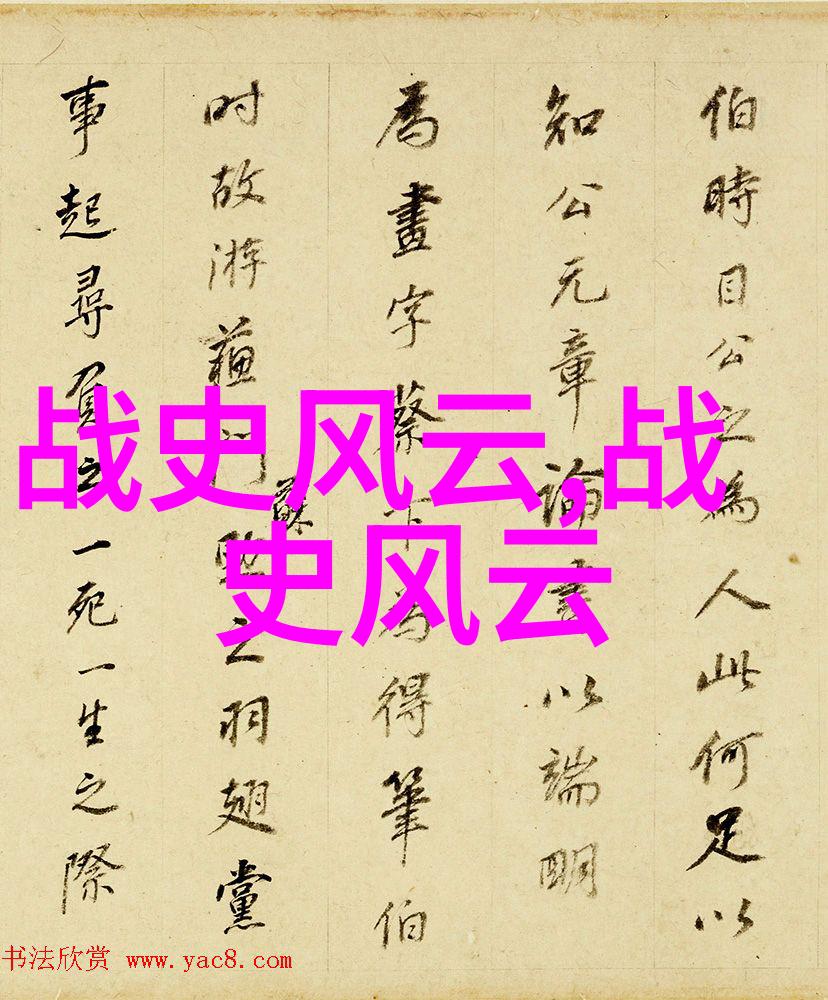 伯時目公之為人此何足以
知公元章論書以端明
為畫字蔡卞為得筆伯
时故游蘓門之羽翅黨
蘇
事起尋負之一死一生之際
战史风云,战
史风云
书法欣赏 www.yac8.com